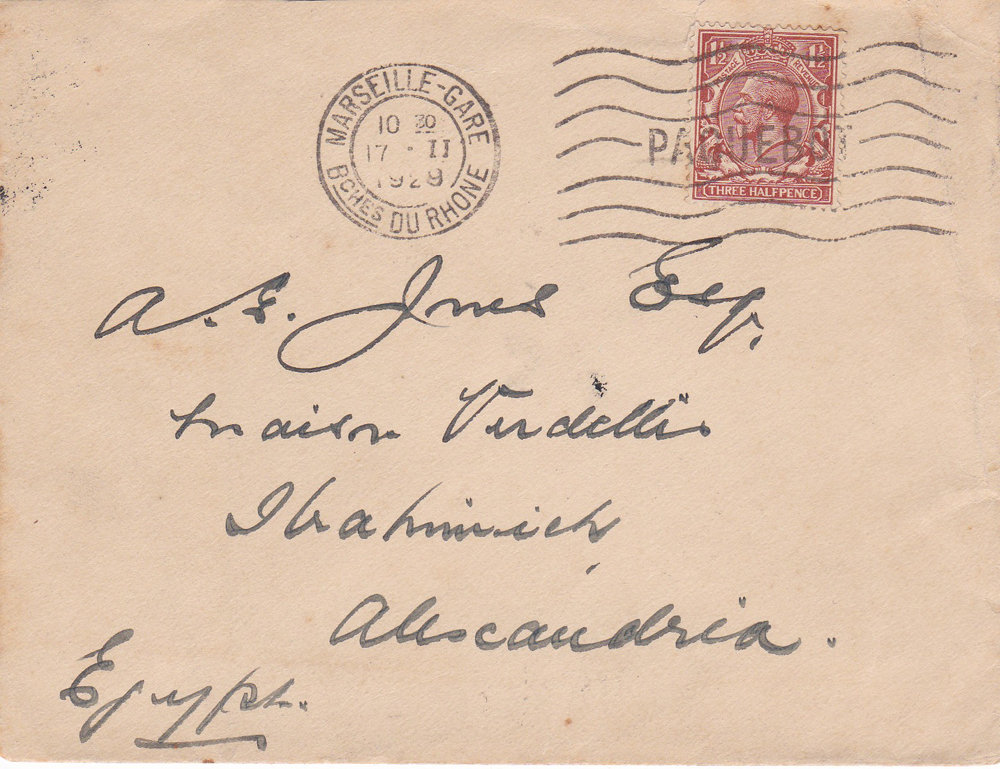 MARSEILLE-GARE
10 30
17 · II
1929
BCHES DU RHONE
1½ 1½
POSTAGE REVENUE
PAQUEBOT
THREE HALFPENCE
A. E. Jones Esq.
Maison Verdellis
Ibrahimieh
Alexandria.
Egypt.